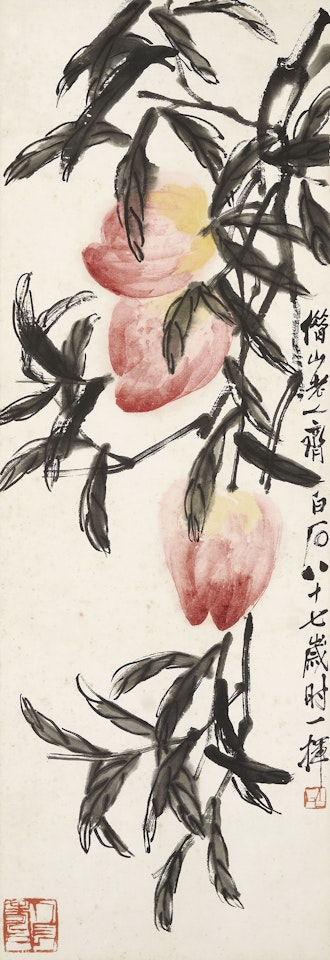 借山老人齊白石八十七歲時一揮